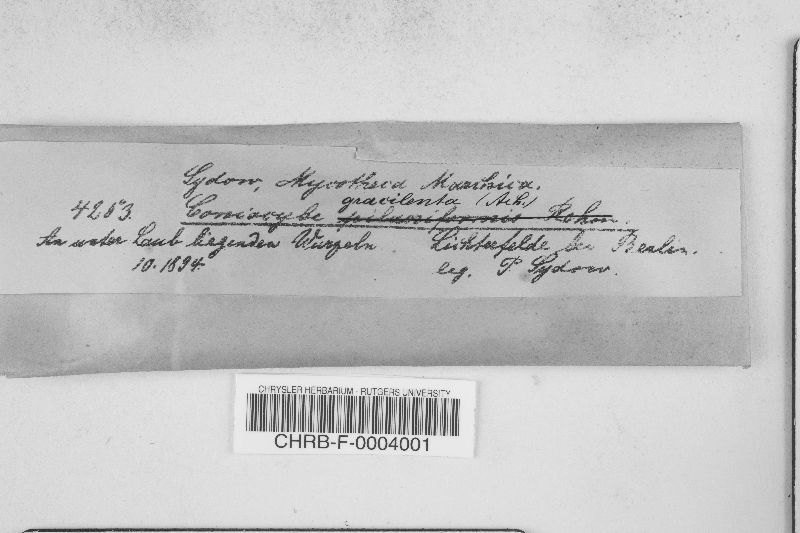 Sydow, Mycotheca Marchica.
gracilenta (Ach.)
4253. Coniocybe piluriformis Rehm.
An unter Laub liegenden Wurzeln Lichterfelde bei Berlin.
10.1894. leg. P. Sydow.
CHRYSLER HERBARIUM - RUTGERS UNIVERSITY
CHRB-F-0004001